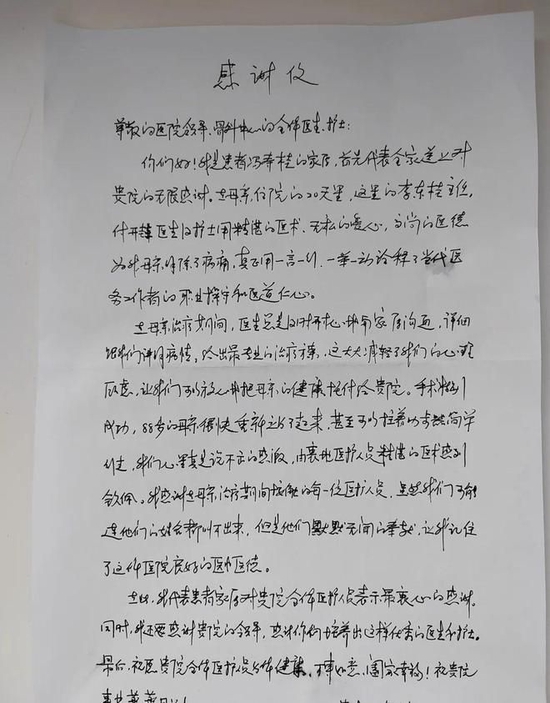 感谢信
尊敬的医院领导、骨科中心的全体医生、护士：
你们好！我是患者冯春桂的家属，首先代表全家送上对
贵院的无限感谢。在母亲住院的20天里，这里的李东桂主任，
付开锋医生及护士用精湛的医术、无私的爱心，高尚的医德
为我母亲解除了病痛，真正用一言一行、一举一动诠释了当代医
务工作者的职业操守和医道仁心。
在母亲治疗期间，医生总是及时耐心地和家属沟通，详细
跟我们讲明病情，给出最专业的治疗方案，这大大减轻了我们的心理
压力，让我们可以放心地把母亲的健康托付给贵院。手术顺利
成功，88岁的母亲很快重新站了起来，甚至可以拄着助步器简单
行走，我们心里真是说不出的感激，由衷地医护人员精湛的医术感到
钦佩。我感谢母亲治疗期间接触的每一位医护人员，虽然我们可能
连他们的姓名都叫不出来，但是他们默默无闻的奉献，让我记住
了这种医院良好的医术医德。
在此，我代表患者家属对贵院全体医护人员表示最衷心的感谢。
同时，我还要感谢贵院的领导，感谢你们培养出这样优秀的医生和护士。
最后，祝愿贵院全体医护人员身体健康、万事如意、阖家幸福！祝贵院
事业蒸蒸日上！